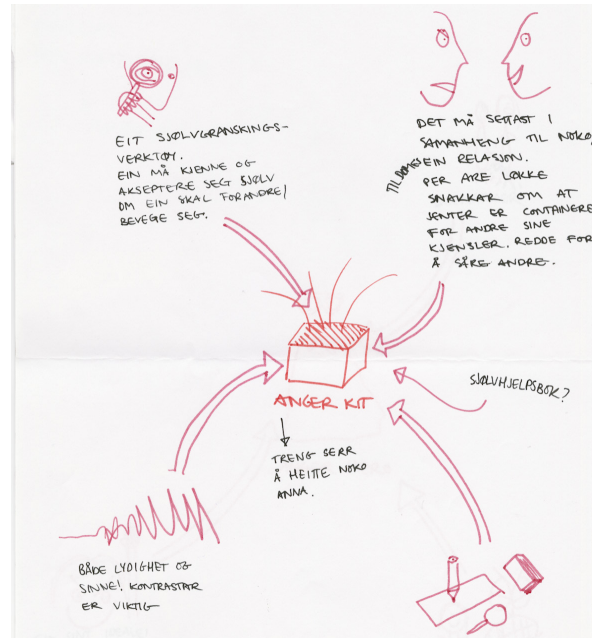 EIT SJØLVGRANSKINGS-
VERKTØY.
EIN MÅ KJENNE OG
AKSEPTERE SEG SJØLV
OM EIN SKAL FORANDRE/
BEVEGE SEG.
DET MÅ SETTAST I
SAMANHENG TIL NOKO,
TIL DØMES EIN RELASJON.
PER ARE LØKKE
SNAKKAR OM AT
JENTER ER CONTAINERE
FOR ANDRE SINE
KJENSLER. REDDE FOR
Å SÅRE ANDRE.
ANGER KIT
SJØLVHJELPSBOK?
TRENG SERR
Å HEITE NOKO
ANNA.
BÅDE LYDIGHET OG
SINNE! KONTRASTAR
ER VIKTIG